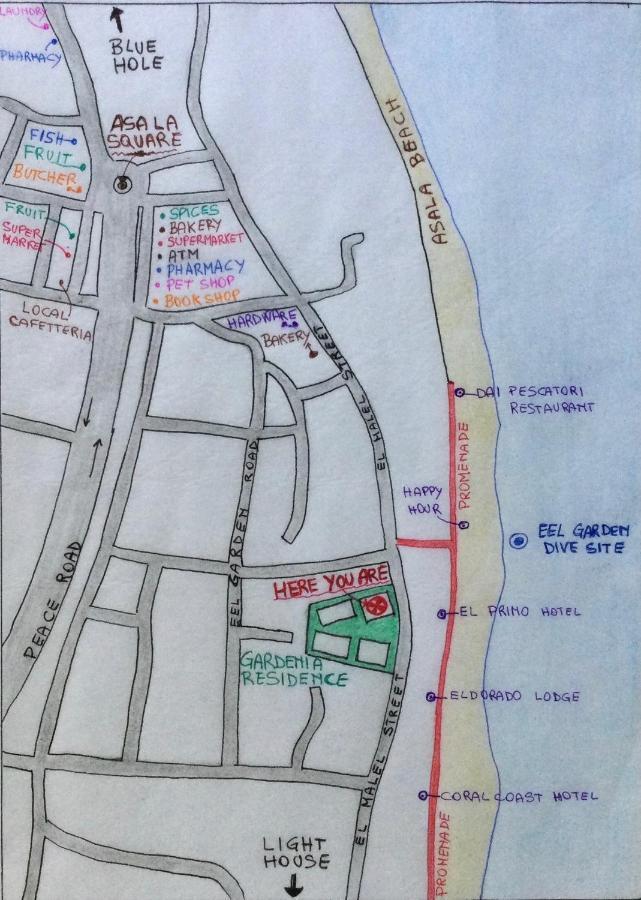 LAUNDRY
PHARMACY
BLUE
HOLE
ASALA
SQUARE
FISH
FRUIT
BUTCHER
FRUIT
SUPER
MARKET
LOCAL
CAFETTERIA
SPICES
BAKERY
SUPERMARKET
ATM
PHARMACY
PET SHOP
BOOKSHOP
HARDWARE
BAKERY
ASALA BEACH
EL MALEL STREET
DAI PESCATORI
RESTAURANT
PROMENADE
HAPPY
HOUR
EEL GARDEN
DIVE SITE
PEACE ROAD
EEL GARDEN ROAD
HERE YOU ARE
GARDENIA
RESIDENCE
EL PRIMO HOTEL
ELDORADO LODGE
CORAL COAST HOTEL
EL MALEL STREET
PROMENADE
LIGHT
HOUSE